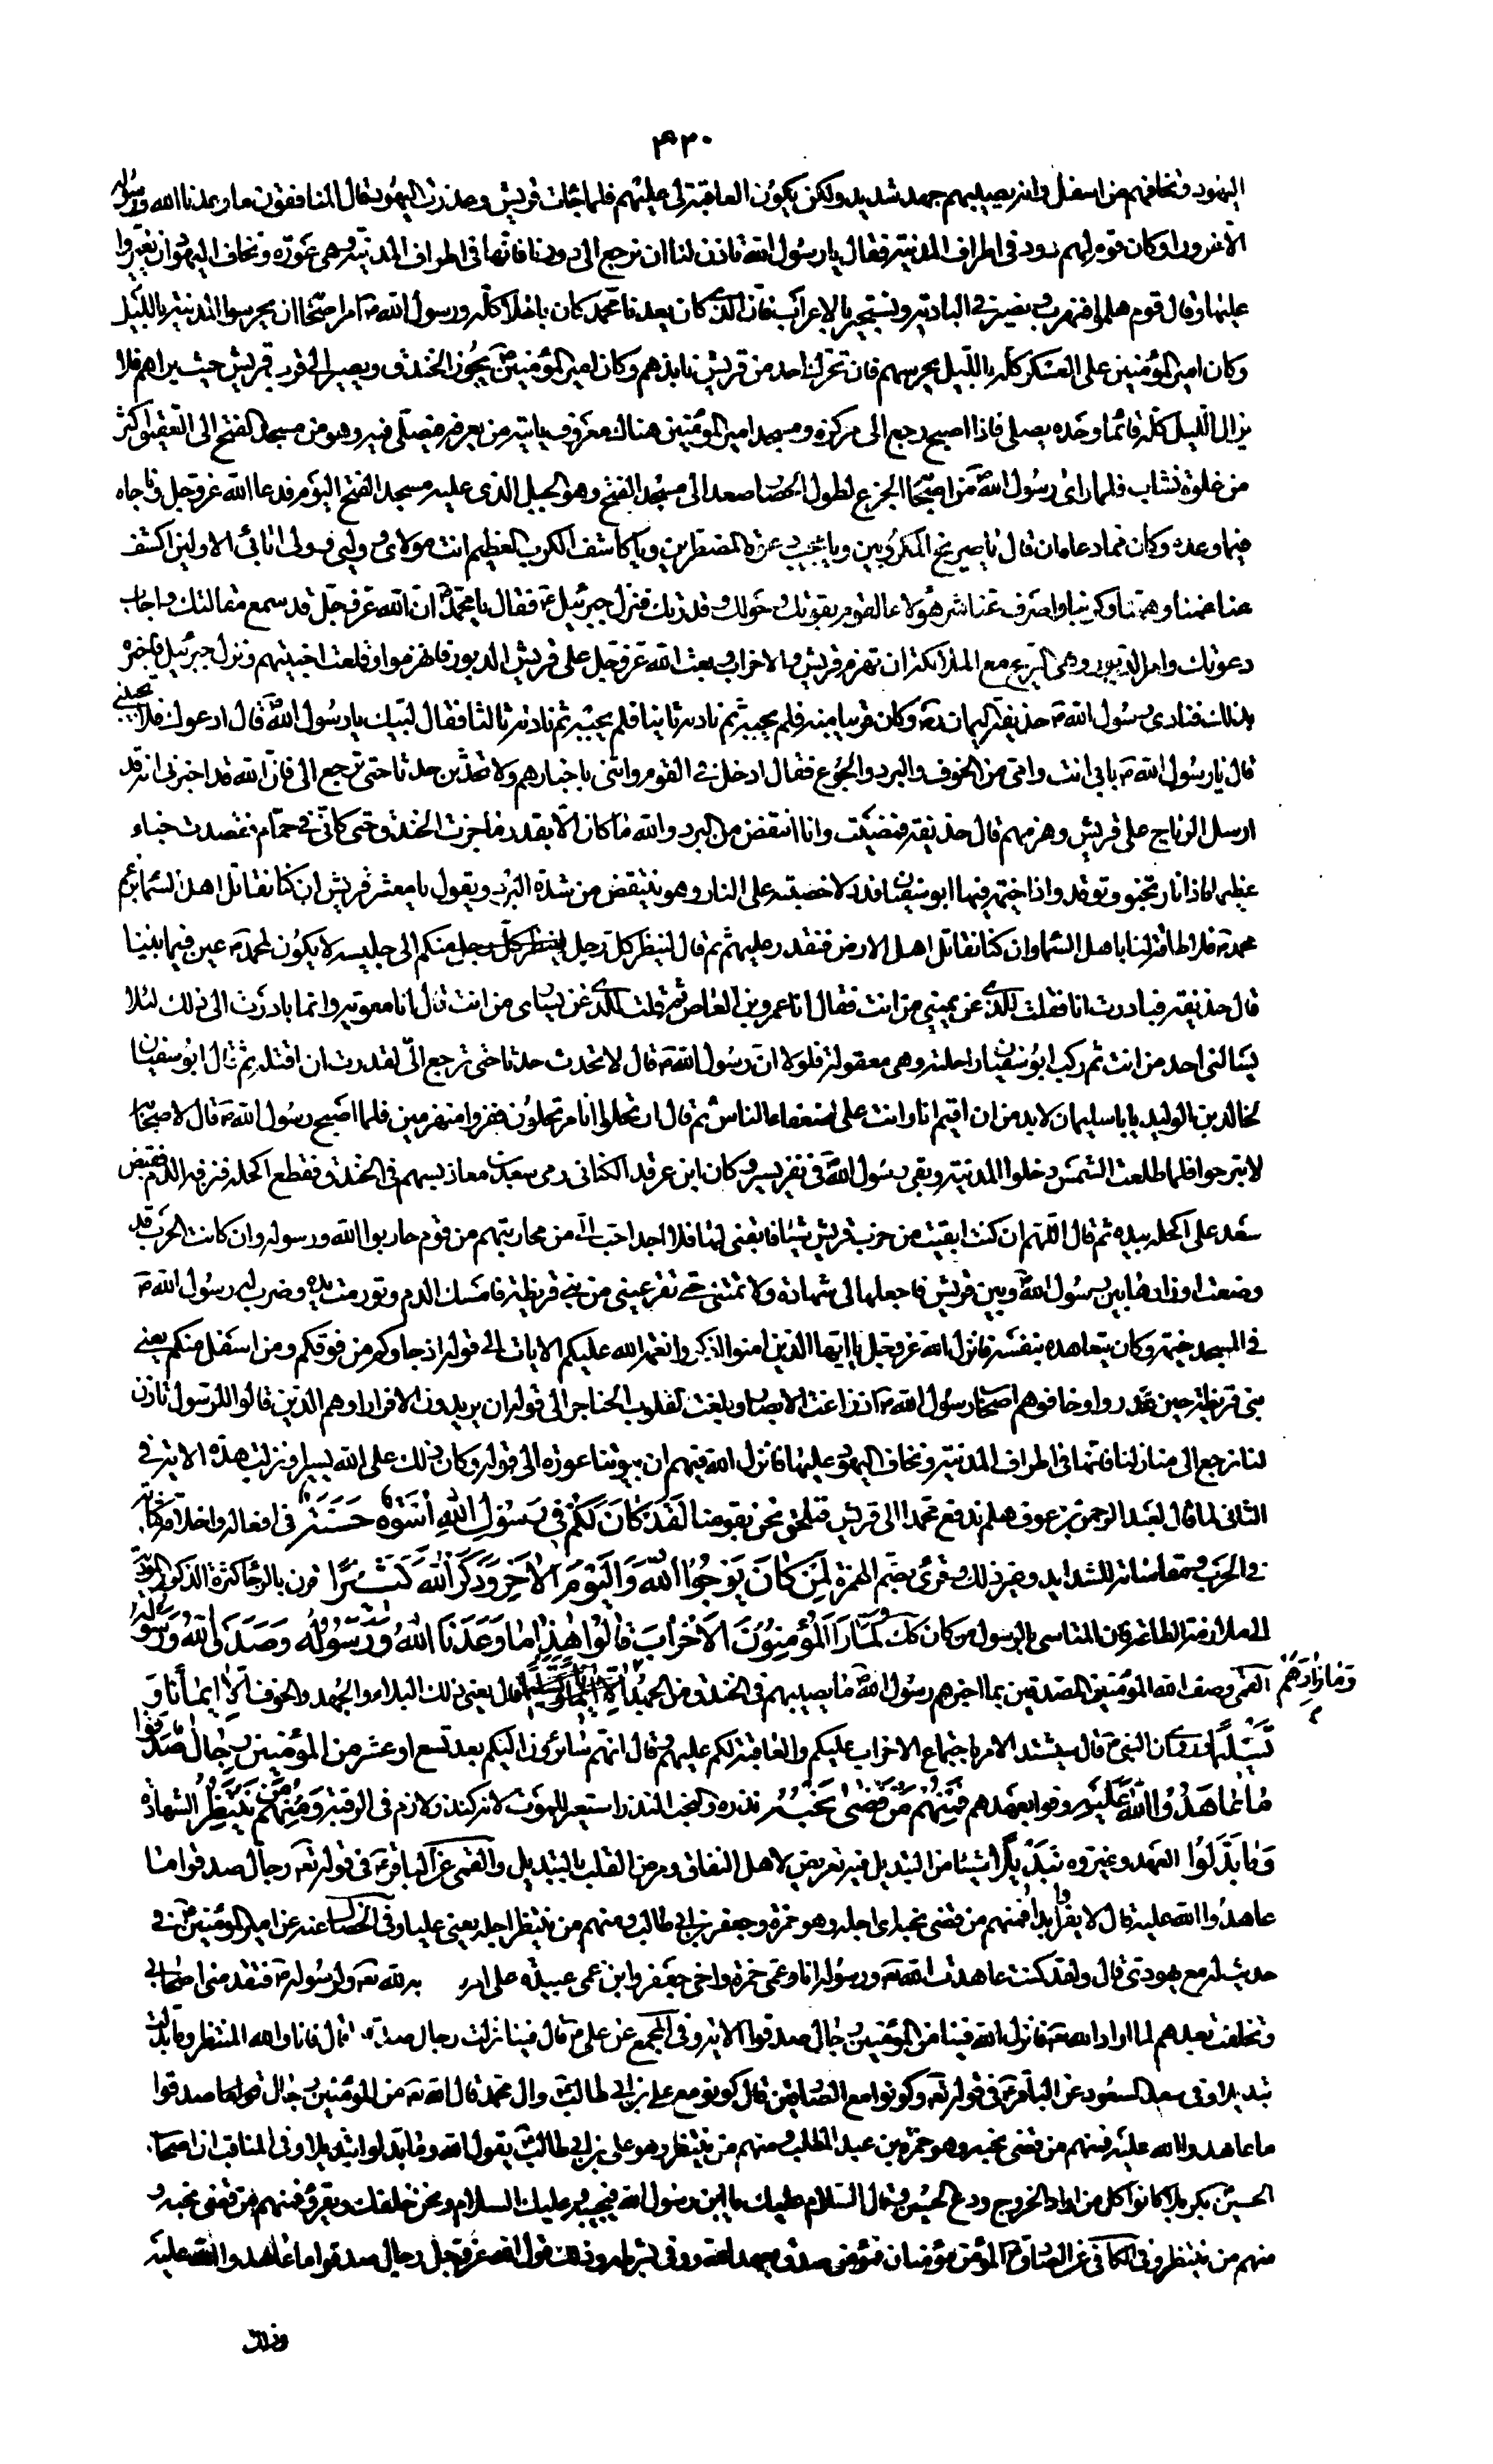 ٤٣٠
اليهود ونخافهم من اسفل وانه يصيبهم جهد شديد ولكن يكون العاقبة لى عليهم فلما جائت قريش وغدرت اليهود قال المنافقون ما وعدنا الله ورسوله
الا غرورا وكان قوم لهم دور فى اطراف المدينة فقال يا رسول الله تاذن لنا ان نرجع الى دورنا فانها فى اطراف المدينة وهى عورة ونخاف اليهود ان يغيروا
عليها وقال قوم هلموا فنهرب ونصير فى البادية ونستجير بالاعراب فان الذى كان يعدنا محمد كان باطلا كله ورسول الله ص امر اصحابه ان يحرسوا المدينة بالليل
وكان امير المؤمنين على العسكر كله بالليل يحرسهم فان تحرك احد من قريش نابذهم وكان امير المؤمنين ع يجوز الخندق ويصير الى قرب قريش حيث يراهم فلا
يزال الليل كله قائما وحده يصلى فاذا اصبح رجع الى مركزه ومسجد امير المؤمنين هناك معروف ياتيه من يعرفه فيصلى فيه وهو من مسجد الفتح الى العقيق اكثر
من غلوة نشاب فلما راى رسول الله ص من اصحابه الجزع لطول الحصار صعد الى مسجد الفتح وهو الجبل الذى عليه مسجد الفتح اليوم فدعا الله عز وجل وناجاه
فيما وعده وكان مما دعا ان قال يا صريخ المكروبين ويا مجيب دعوة المضطرين ويا كاشف الكرب العظيم انت مولاى وليى وولى ابائى الاولين اكشف
عنا غمنا وهمنا وكربنا واصرف عنا شر هؤلاء القوم بقوتك وحولك وقدرتك فنزل جبرئيل ع فقال يا محمد ان الله عز وجل قد سمع مقالتك واجاب
دعوتك وامر الدبور وهى الريح مع الملائكة ان تهزم قريش والاحزاب وبعث الله عز وجل على قريش الدبور فانهزموا وقلعت اخبيتهم ونزل جبرئيل فاخبره
بذلك فنادى رسول الله ص حذيفة اليمان ره وكان قريبا منه فلم يجبه ثم ناديه ثانيا فلم يجبه ثم ناديه ثالثا فقال لبيك يا رسول الله ص قال ادعوك فلا تجيبنى
قال يا رسول الله ص بابى انت وامى من الخوف والبرد والجوع فقال ادخل فى القوم وائتنى باخبارهم ولا تحدثن حدثا حتى ترجع الى فان الله قد اخبرنى انه قد
ارسل الرياح على قريش وهزمهم قال حذيفة فمضيت وانا انتفض من البرد والله ما كان الا بقدر ما جزت الخندق حتى كانى فى حمام فقصدت خباء
عظيما فاذا نار تخبو وتوقد واذا خيمة فيها ابو سفيان قد دلا خصيتيه على النار وهو ينتفض من شدة البرد ويقول يا معشر قريش ان كنا نقاتل اهل السماء بزعم
محمد ص فلا طاقة لنا باهل السماء وان كنا نقاتل اهل الارض فنقدر عليهم ثم قال لينظر كل رجل منكم الى جليسه لا يكون لمحمد ص عين فيما بيننا
قال حذيفة فبادرت انا فقلت للذى عن يمينى من انت فقال انا عمرو بن العاص ثم قلت للذى عن يسارى من انت قال انا معوية وانما بادرت الى ذلك لئلا
يسالنى احد من انت ثم ركب ابو سفيان راحلته وهى معقولة فلولا ان رسول الله ص قال لا تحدث حدثا حتى ترجع الى لقدرت ان اقتله ثم قال ابو سفيان
لخالد بن الوليد يا ابا سليمان لا بد من ان اقيم انا وانت على ضعفاء الناس ثم قال ارتحلوا انا مرتحلون ففروا منهزمين فلما اصبح رسول الله ص قال لاصحابه
لا تبرحوا فلما طلعت الشمس دخلوا المدينة وبقى رسول الله ص فى نفر يسير وكان ابن عرقد الكنانى رمى سعد بن معاذ بسهم فى الخندق فقطع اكحله فنزفه الدم فقبض
سعد على اكحله بيده ثم قال اللهم ان كنت ابقيت من حرب قريش شيئا فابقنى لها فلا احد احب الى من محاربتهم من قوم حاربوا الله ورسوله وان كانت الحرب قد
وضعت اوزارها بين رسول الله ص وبين قريش فاجعلها لى شهادة ولا تمتنى حتى تقر عينى من بنى قريظة فامسك الدم وتورمت يده وضرب له رسول الله ص
فى المسجد خيمة وكان يتعاهده بنفسه فانزل الله عز وجل يا ايها الذين امنوا اذكروا نعمة الله عليكم الايات الى قوله اذ جاؤكم من فوقكم ومن اسفل منكم يعنى
بنى قريظة حين غدروا وخافوهم اصحاب رسول الله ص واذ زاغت الابصار وبلغت القلوب الحناجر الى قوله ان يريدون الا فرارا وهم الذين قالوا للرسول تاذن
لنا نرجع الى منازلنا فانها فى اطراف المدينة ونخاف اليهود عليها فانزل الله فيهم ان بيوتنا عورة الى قوله وكان ذلك على الله يسيرا ونزلت هذه الاية فى
الثانى لما قال لعبد الرحمن بن عوف هلم ندفع محمدا الى قريش ونلحق نحن بقومنا لَقَدْ كَانَ لَكُمْ فِي رَسُولِ اللهِ اُسْوَةٌ حَسَنَةٌ فى افعاله واخلاقه كثباته
فى الحرب ومقاساته للشدايد وغير ذلك وقرئ بضم الهمزة لِمَنْ كَانَ يَرْجُوا اللهَ وَالْيَوْمَ الْآخِرَ وَذَكَرَ اللهَ كَثِيرًا قرن بالرجاء كثرة الذكر المؤدية
الى ملازمة الطاعة فان المتاسى بالرسول من كان كذلك وَلَمَّا رَأَ الْمُؤْمِنُونَ الْاَحْزَابَ قَالُوا هٰذَا مَا وَعَدَنَا اللهُ وَرَسُولُهُ وَصَدَقَ اللهُ وَرَسُولُهُ
وَمَا زَادَهُمْ القمى وصف الله المؤمنين المصدقين بما اخبرهم رسول الله ص ما يصيبهم فى الخندق من الجهد قال يعنى ذلك البلاء والجهد والخوف اِلَّا اِيمَانًا وَ
تَسْلِيمًا وروى ان النبى ص قال سيشتد الامر باجتماع الاحزاب عليكم والعاقبة لكم عليهم وقال انهم سائرون اليكم بعد تسع او عشر مِنَ الْمُؤْمِنِينَ رِجَالٌ صَدَقُوا
مَا عَاهَدُوا اللهَ عَلَيْهِ وفوا بعهدهم فَمِنْهُمْ مَنْ قَضٰى نَحْبَهُ نذره والنحب النذر استعير للموت لانه كنذر لازم فى الرقبة وَمِنْهُمْ مَنْ يَنْتَظِرُ الشهادة
وَمَا بَدَّلُوا العهد وغيروه تَبْدِيلًا شيئا من التبديل فيه تعريض لاهل النفاق ومرض القلب بالتبديل والقمى عن الباقر ع فى قوله تعالى رجال صدقوا ما
عاهدوا الله عليه قال لا يفروا ابدا فمنهم من قضى نحبه اى اجله وهو حمزة وجعفر بن ابى طالب ومنهم من ينتظر اجله يعنى عليا وفى الخصال عنه عن امير المؤمنين ع فى
حديث له مع يهودى قال ولقد كنت عاهدت الله تعالى ورسوله انا وعمى حمزة واخى جعفر وابن عمى عبيدة على امر به لله تعالى ولرسوله ص فتقدمنى اصحابى
وتخلفت بعدهم لما اراد الله تعالى فانزل الله فينا من المؤمنين رجال صدقوا الاية وفى المجمع عن على ع قال فينا نزلت رجال صدقوا قال فانا والله المنتظر وما بدلت
تبديلا وفى سعد السعود عن الباقر ع فى قوله تعالى وكونوا مع الصادقين قال كونوا مع على بن ابى طالب وال محمد قال الله تعالى من المؤمنين رجال صدقوا
ما عاهدوا الله عليه فمنهم من قضى نحبه وهو حمزة بن عبد المطلب ومنهم من ينتظر وهو على بن ابى طالب يقول الله وما بدلوا تبديلا وفى المناقب ان اصحاب
الحسين بكربلا كانوا كل من اراد الخروج ودع الحسين وقال السلام عليك يا ابن رسول الله فيجيبه وعليك السلام ونحن خلفك ويقرء فمنهم من قضى نحبه و
منهم من ينتظر وفى الكافى عن الصادق ع المؤمن مؤمنان فمؤمن صدق بعهد الله ووفى بشرطه وذلك قول الله عز وجل رجال صدقوا ما عاهدوا الله عليه
وذلك